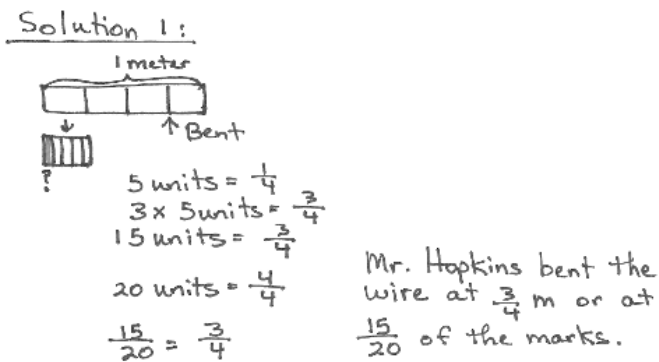 Solution 1:
1 meter
↑ Bent
?
5 units = 1/4
3 × 5 units = 3/4
15 units = 3/4
20 units = 4/4
15/20 = 3/4
Mr. Hopkins bent the
wire at 3/4 m or at
15/20 of the marks.